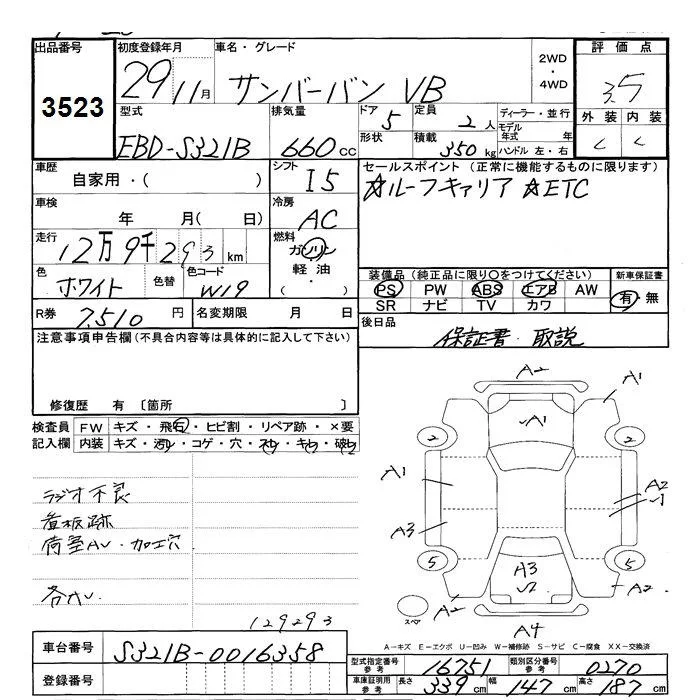 出品番号 初度登録年月 車名・グレード 2WD・4WD 評価点
3523 29 11月 サンバーバン VB 3.5
型式 排気量 ドア 定員 ディーラー・並行 外装 内装
EBD-S321B 660cc 5 2人 モデル年式 年 C C
形状 積載 350kg ハンドル 左・右
車歴 自家用・( ) シフト I5 セールスポイント(正常に機能するものに限ります)
☆ルーフキャリア ☆ETC
車検 年 月(日) 冷房 AC
走行 12万9千293km 燃料 ガソリン・軽油・( )
色 ホワイト 色替 色コード W19 装備品(純正品に限り○をつけてください) 新車保証書
PS PW ABS エアB AW 有・無
SR ナビ TV カワ
R券 7,510円 名変期限 月 日 後日品
保証書・取説
注意事項申告欄(不具合内容等は具体的に記入して下さい)
修復歴 有 〔箇所 〕
検査員 FW キズ・飛石・ヒビ割・リペア跡・×要
記入欄 内装 キズ・汚レ・コゲ・穴・スレ・キレ・破レ
ラジオ不良
看板跡
荷室AU・加工穴
129293
A2
A1
A1
2
2
A1
A2
A3
5
5
A3
A2
A2
A4
スペア
A-キズ E-エクボ U-凹み W-補修跡 S-サビ C-腐食 XX-交換済
車台番号 S321B-0016358
型式指定番号 参考 16751 類別区分番号 参考 0270
登録番号
車庫証明用 参考 長さ 339cm 幅 147cm 高さ 187cm